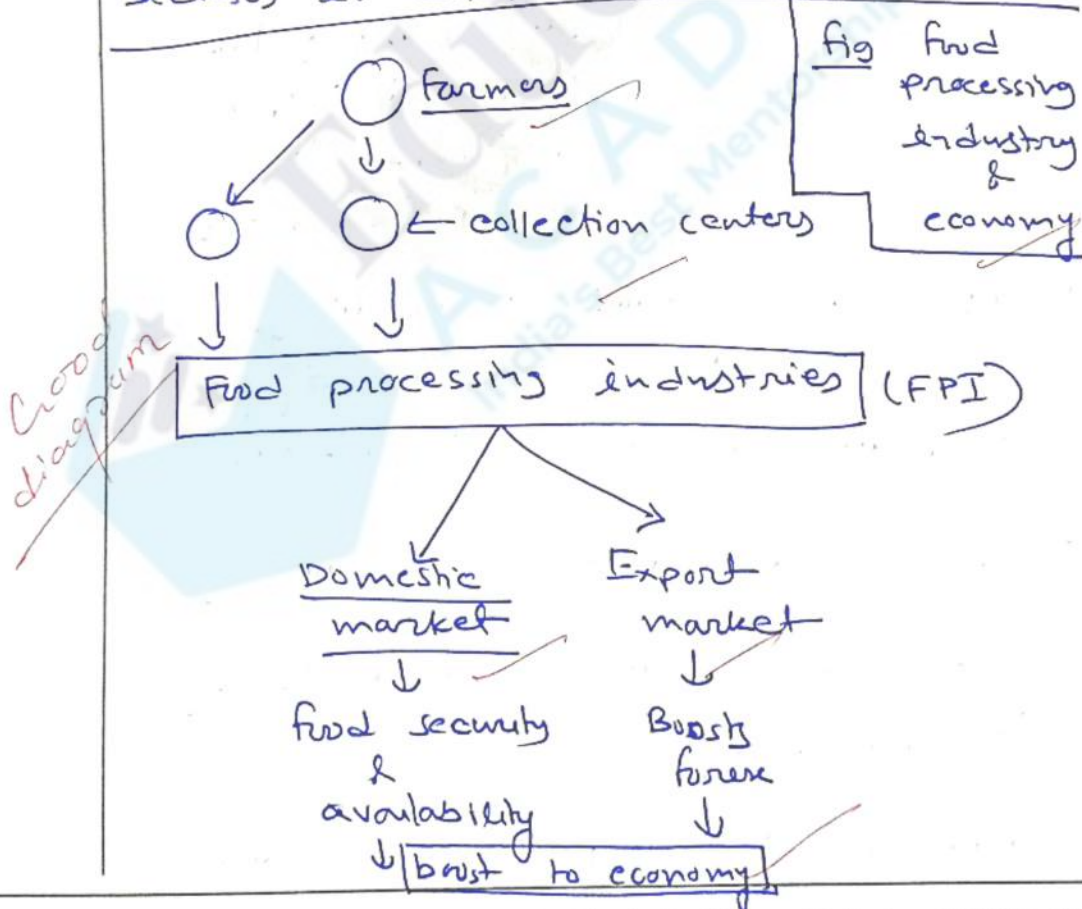 fig food
processing
industry
&
economy
Farmers
collection centers
Good
diagram
Food processing industries (FPI)
Domestic
market
Export
market
food security
&
availability
Boosts
forex
boost to economy
ACAD
India's Best Mentorship